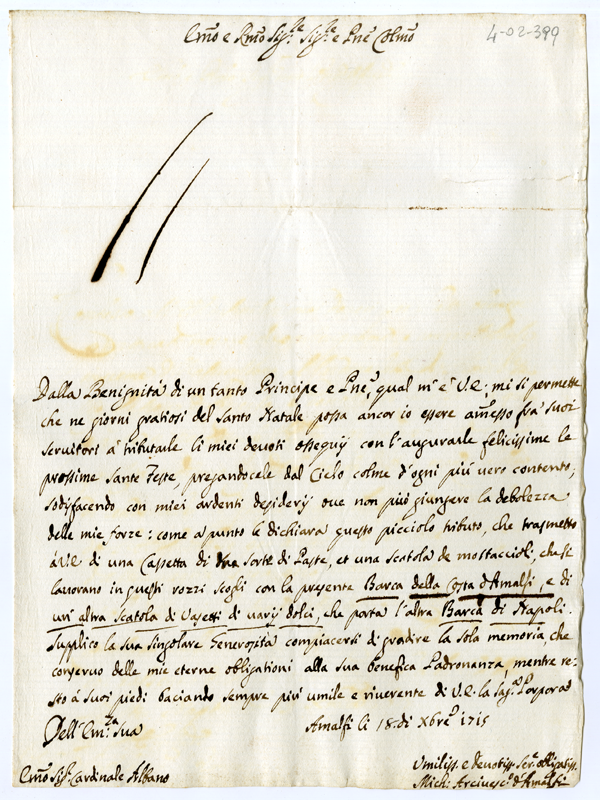 Em̃o e Rm̃o Sig.re Sig.re e Pñe Colmo
4-02-399
Dalla Benignità di un tanto Principe e Pñe, qual m'è V.E.; mi si permette
che ne giorni gratiosi del Santo Natale possa ancor io essere am̃esso fra' suoi
servitori à tributarle li miei devoti ossequij con l'augurarle felicissime le
prossime Sante Feste, pregandocele dal Cielo colme d'ogni più vero contento;
sodisfacendo con miei ardenti desiderij ove non può giungere la debolezza
delle mie forze: come apunto le dichiara questo picciolo tributo, che trasmetto
à V.E. di una Cassetta di una sorte di Paste, et una scatola de mostaccioli, che si
lavorano in questi rozzi scogli con la presente Barca della Costa d'Amalfi, e di
un'altra Scatola di Vasetti di varij dolci, che porta l'altra Barca di Napoli.
Supplico la sua singolare Generosità compiacersi di gradire la sola memoria, che
conservo delle mie eterne obligationi alla sua benefica Padronanza, mentre re-
sto à suoi piedi baciando sempre più umile e riverente di V.E. la Sag.a Porpora
Dell'Em.za Sua
Amalfi li 18. di Xbre 1715
Em̃o Sig.r Cardinale Albano
Umiliss. e devotiss. Ser.e obligatiss.
Mich: Arcivesc.o d'Amalfi